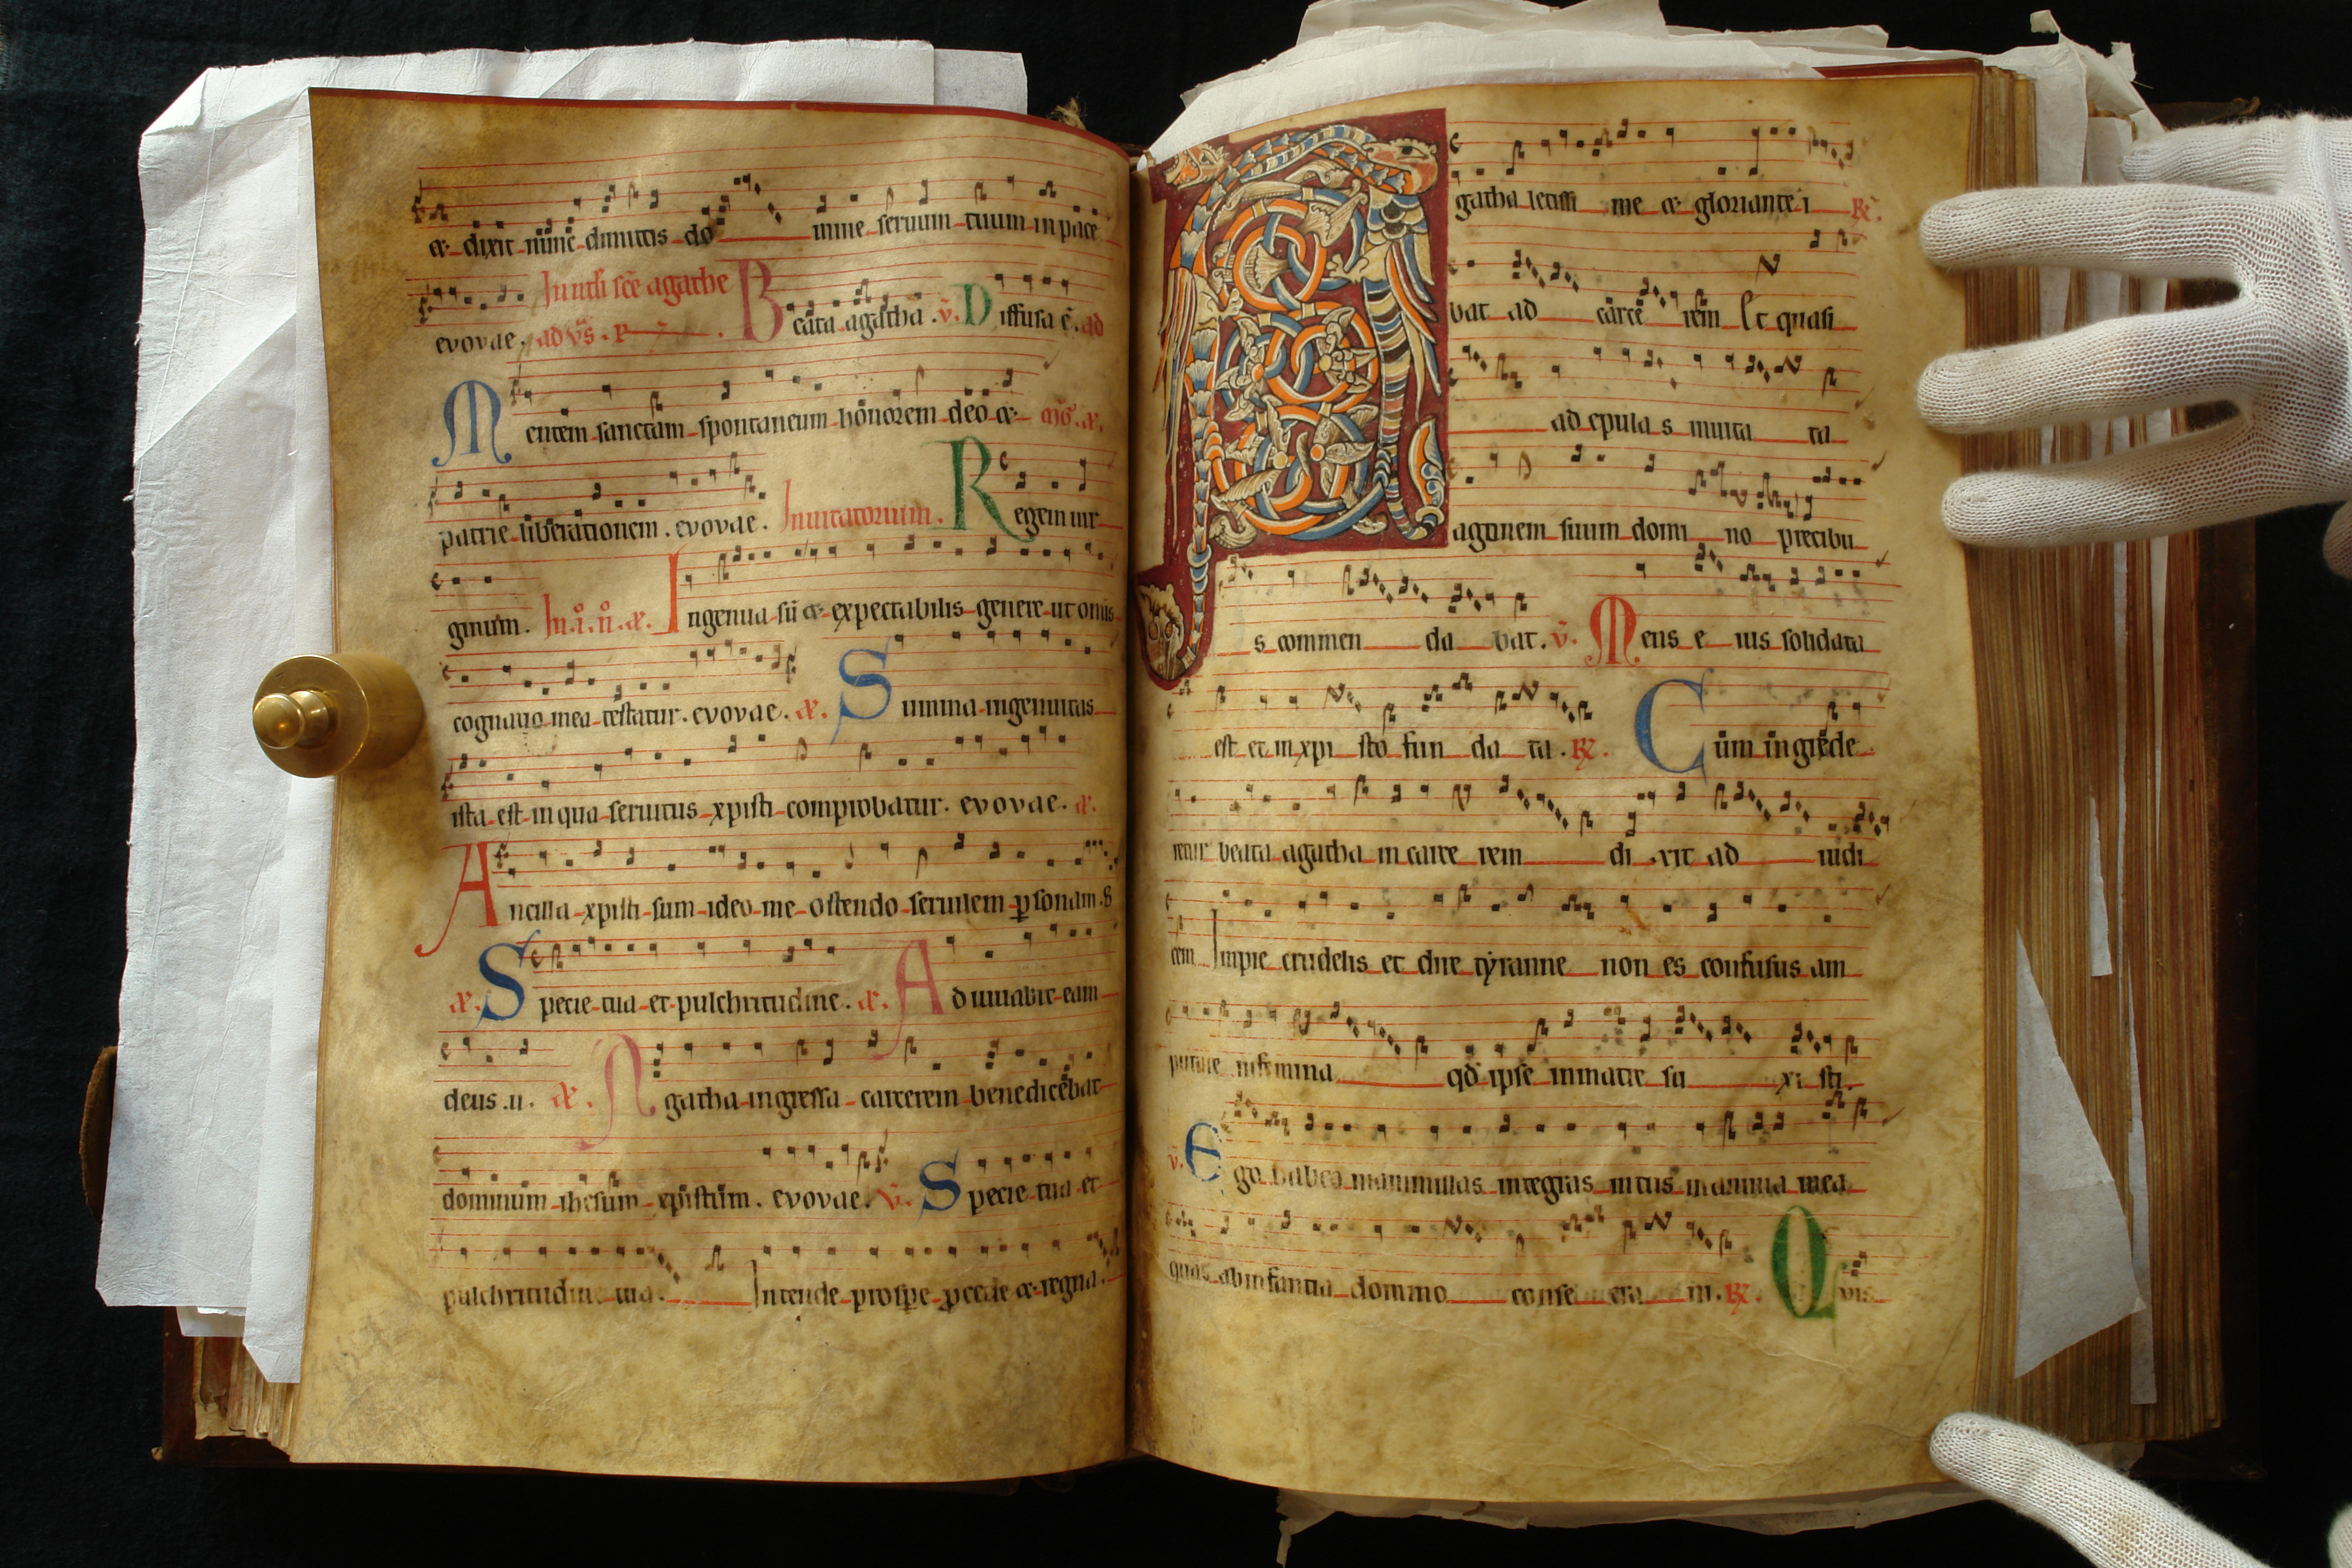 & dixit nunc dimittis do mine seruum tuum in pace
evovae. ad vs. In uigłi scē agathe Beata agatha. v̄. Diffusa ē. ad
Mentem sanctam spontaneum honorem deo &
patrie liberationem. evovae. Inuitatorium. Regem uir
ginum. In .i. n̄. æ. Ingenua sū & expectabilis genere ut omīs
cognatio mea testatur. evovae. æ. Summa ingenuitas
ista est in qua seruitus xpisti comprobatur. evovae. æ.
Ancilla xpisti sum ideo me ostendo seruilem ꝑsonam.
æ. Specie tua et pulchritudine. æ. Adiuuabit eam
deus .u. æ. Agatha ingressa carcerem benedicebat
dominum ihesum xpistum. evovae. v̄. Specie tua et
pulchritudine tua. Intende prospe ꝓcede & regna.
Agatha letissi me & glorianter i ℟.
bat ad carcē rem Et quasi
ad epula s inuita ta
agonem suum domi no precibu
s commen da bat. v̄. Mens e ius solidata
est et in xpi sto fun da ta. ℟. Cum ingrede
retur beata agatha in carce rem di xit ad iudi
cem Impie crudelis et dire tyranne non es confusus am
putare in femina qđ ipse in matre su xi sti.
v̄. Ego habeo mammillas integras intus in anima mea
quas ab infantia domino conse cra ui. ℟. Quis